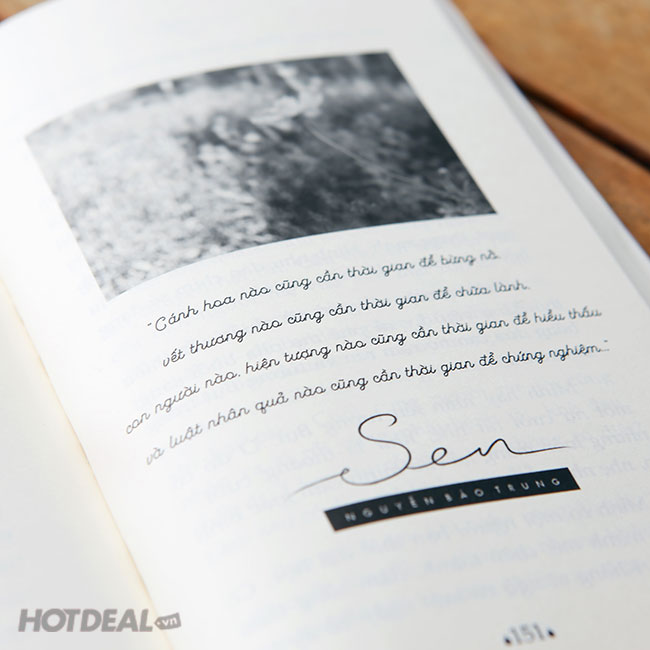 "Cánh hoa nào cũng cần thời gian để bừng nở,
vết thương nào cũng cần thời gian để chữa lành,
con người nào, hiện tượng nào cũng cần thời gian để hiểu thấu
và luật nhân quả nào cũng cần thời gian để chứng nghiệm..."
Sen
NGUYỄN BẢO TRUNG
151
HOTDEAL.vn